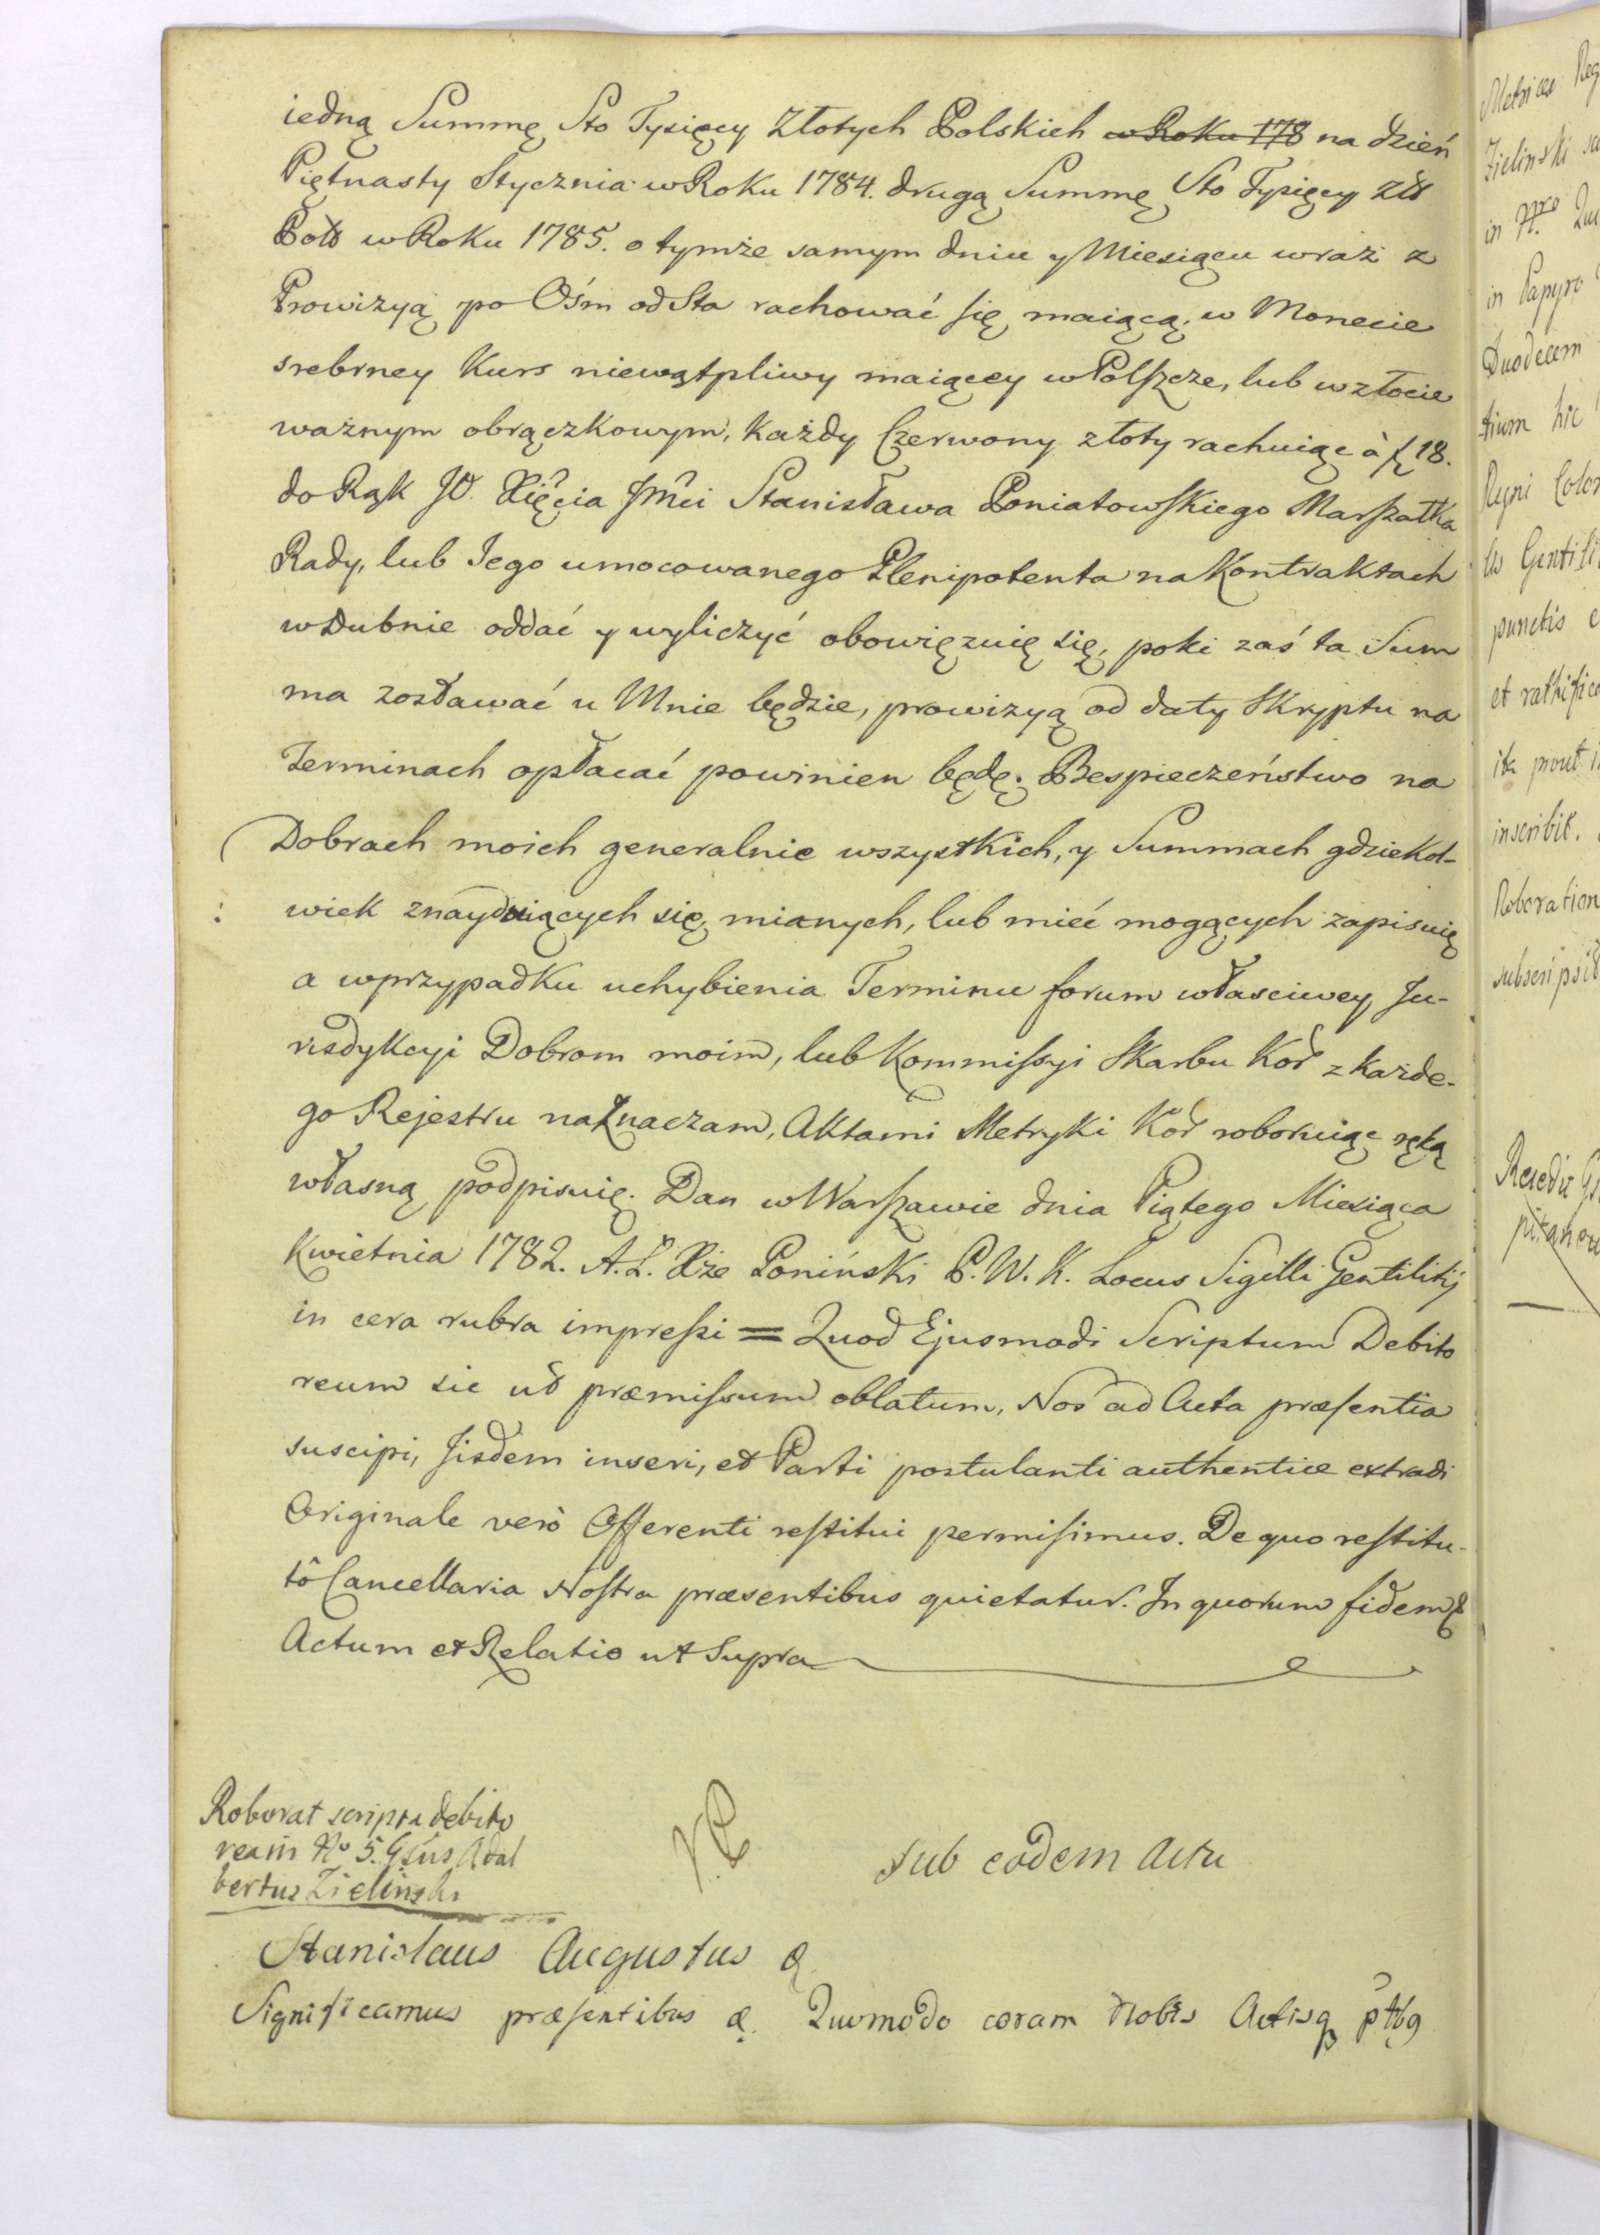 iedną Summę Sto Tysięcy Złotych Polskich w Roku 178 na dzień
Piętnasty Stycznia w Roku 1784. drugą Summę Sto Tysięcy Złł
Poll w Roku 1785. o tymże samym dniu y Miesiącu wraz z
Prowizyą po Ośm od Sta rachować się maiącą, w Monecie
srebrney Kurs niewątpliwy maiącey w Polszcze, lub w złocie
ważnym obrączkowym, każdy Czerwony złoty rachuiąc à f 18.
do Rąk JO. Xięcia Jmci Stanisława Poniatowskiego Marszałka
Rady, lub Jego umocowanego Plenipotenta na Kontraktach
w Dubnie oddać y wyliczyć obowięzuię się, poki zaś ta Sum
ma zostawać u Mnie będzie, prowizyą od daty Skryptu na
Terminach opłacać powinien będę. Bespieczeństwo na
Dobrach moich generalnie wszystkich, y Summach gdziekol-
wiek znayduiących się, mianych, lub mieć mogących zapisuię
a w przypadku uchybienia Terminu forum właściwey Ju-
risdykcyi Dobrom moim, lub Kommissyi Skarbu Kor z każde-
go Rejestru naznaczam, Aktami Metryki Kor roboruiąc ręką
własną podpisuię. Dan w Warszawie dnia Piątego Miesiąca
Kwietnia 1782. A. Ł. Xże Poniński P. W. K. Locus Sigilli Gentilitij
in cera rubra impressi = Quod Ejusmodi Scriptum Debito
reum sic ut præmissum oblatum, Nos ad Acta præsentia
suscipi, Iisdem inseri, et Parti postulanti authentice extradi
Originale verò Offerenti restitui permisimus. De quo restitu-
tô Cancellaria Nostra præsentibus quietatur. In quorum fidem &
Actum et Relatio ut Supra
Roborat scripta debito
rea in No 5. Gsus Adal
bertus Zielinski
sub eodem Actu
Stanislaus Augustus &
Significamus præsentibus &. Quomodo coram Nobis Actisq